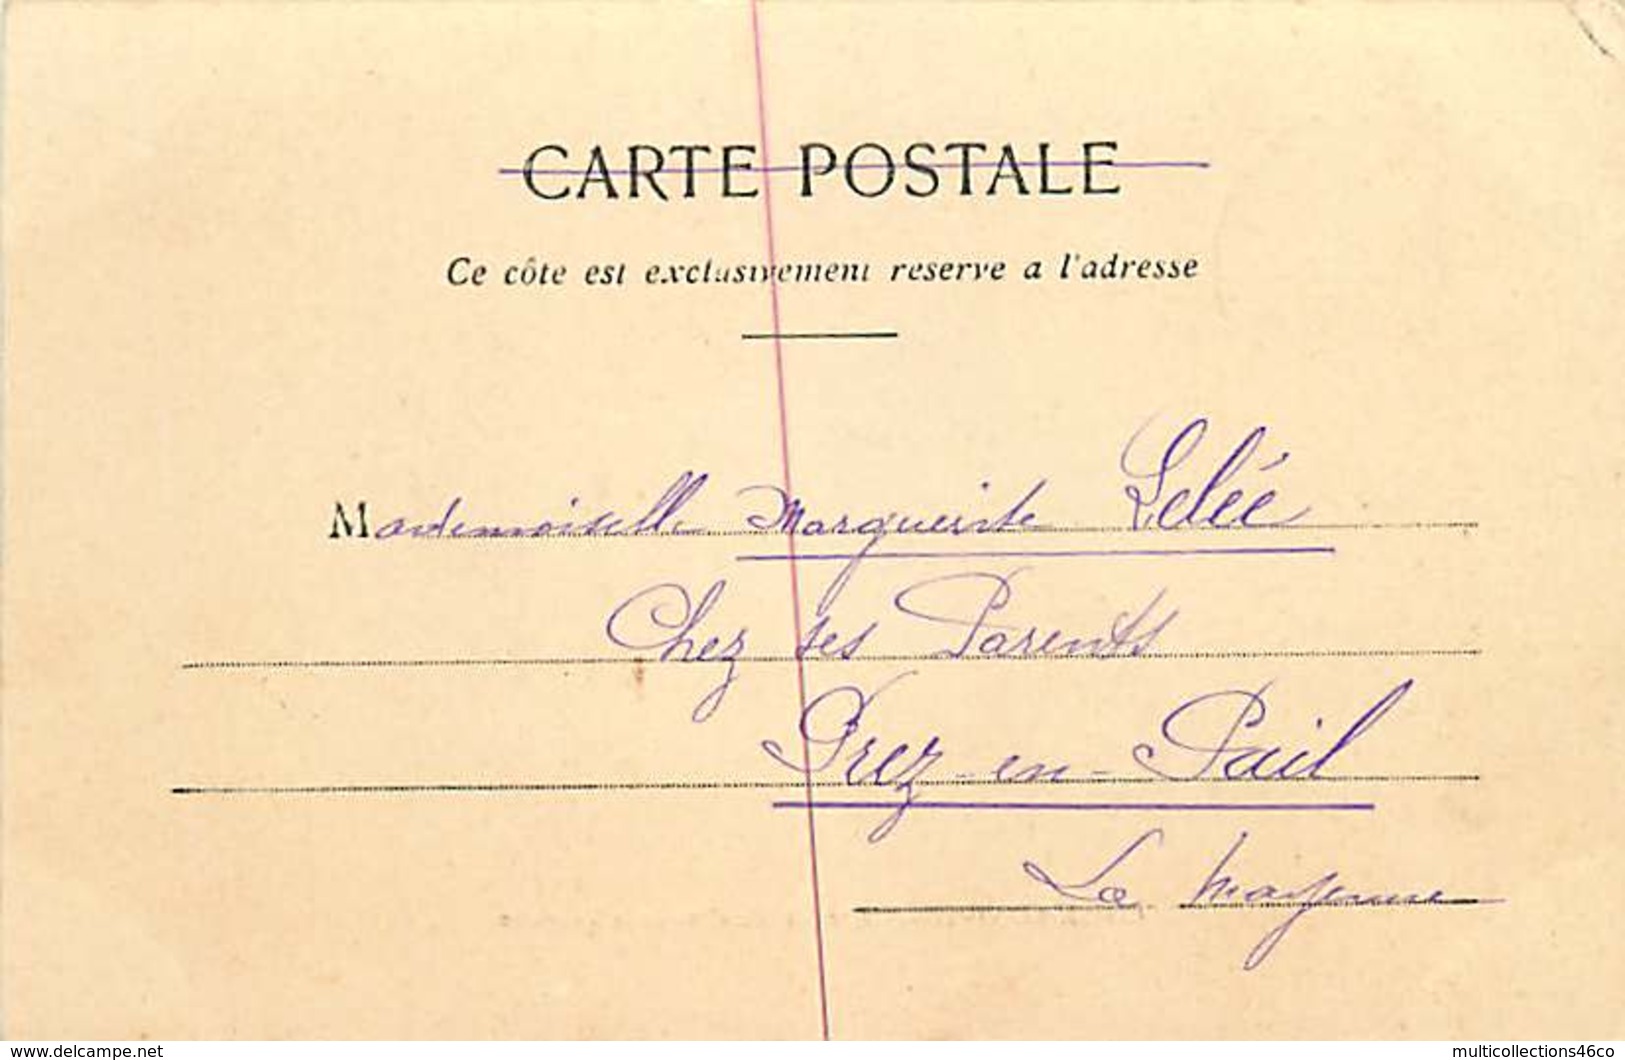 CARTE POSTALE
Ce côte est exclusivement reserve a l'adresse
Mademoiselle Marguerite Lelée
Chez ses Parents
Prez-en-Pail
La Mayenne
www.delcampe.net
multicollections46co